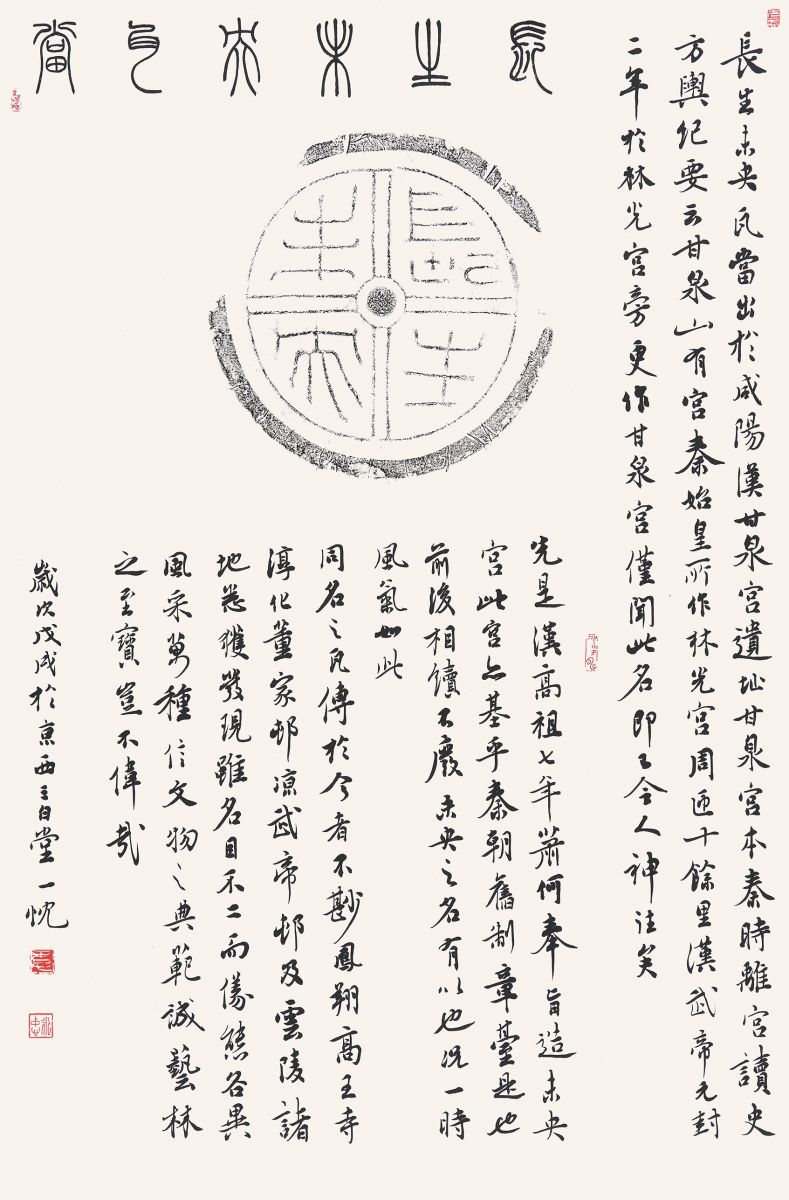 長生未央瓦當
長生
未央
長生未央瓦當出於咸陽漢甘泉宮遺址甘泉宮本秦時離宮讀史
方輿紀要云甘泉山有宮秦始皇所作林光宮周匝十餘里漢武帝元封
二年於林光宮旁更作甘泉宮僅聞此名即已令人神往矣
先是漢高祖七年蕭何奉旨造未央
宮此宮亦基乎秦朝舊制章臺是也
前後相續不廢未央之名有以也況一時
風氣如此
同名之瓦傳於今者不尠鳳翔高王寺
淳化董家邨涼武帝邨及雲陵諸
地悉獲發現雖名目不二而儀態各異
風采萬種信文物之典範誠藝林
之至寶豈不偉哉
歲次戊戌於京西三日堂一忱